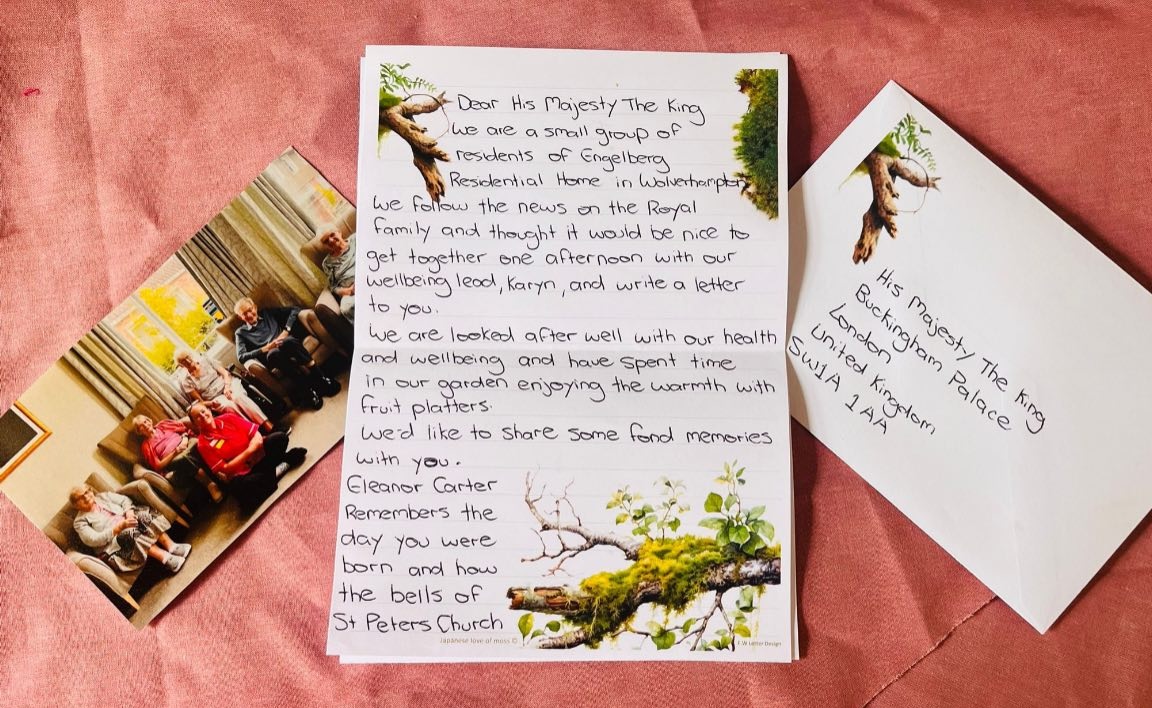 Dear His Majesty The King
We are a small group of
residents of Engelberg
Residential Home in Wolverhampton,
We follow the news on the Royal
family and thought it would be nice to
get together one afternoon with our
wellbeing lead, Karyn, and write a letter
to you.
We are looked after well with our health
and wellbeing and have spent time
in our garden enjoying the warmth with
fruit platters.
We'd like to share some fond memories
with you.
Eleanor Carter
Remembers the
day you were
born and how
the bells of
St Peters Church
Japanese love of moss ©
Letter Design
His Majesty The King
Buckingham Palace
London
United Kingdom
SW1A 1AA